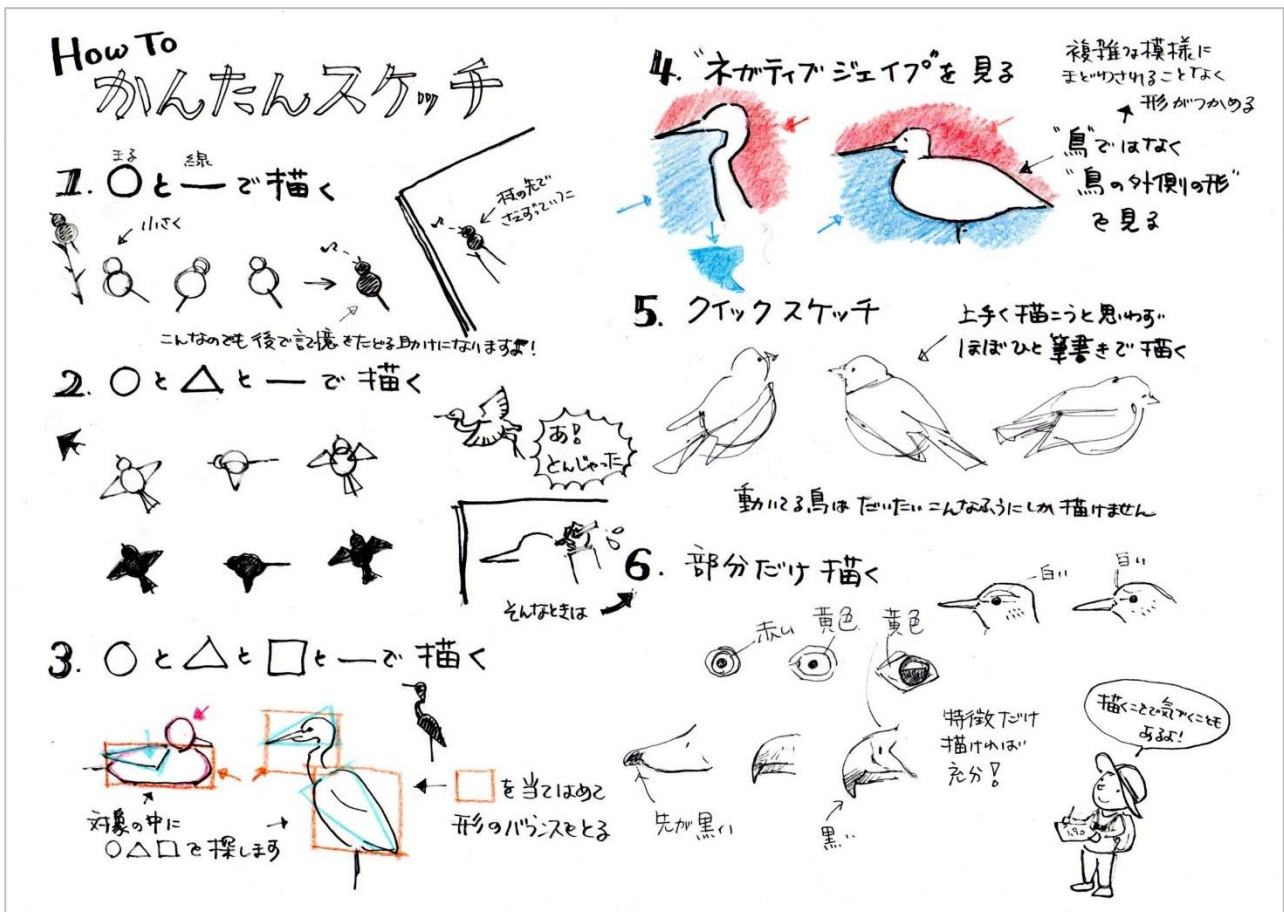 How To
かんたんスケッチ
1. ○と―で描く
まる
線
小さく
枝の先で
さえずっていた
こんなのでも後で記憶をたどる助けになりますよ!
2. ○と△と―で描く
あ!
とんじゃった
そんなときは
3. ○と△と□と―で描く
対象の中に
○△□を探します
□を当てはめて
形のバランスをとる
4. “ネガティブジェイプ”を見る
複雑な模様に
まどわされることなく
形がつかめる
“鳥”ではなく
“鳥の外側の形”
を見る
5. クイックスケッチ
上手く描こうと思わず
ほぼひと筆書きで描く
動いてる鳥はだいたいこんなふうにしか描けません
6. 部分だけ描く
白い
白い
赤い
黄色
黄色
特徴だけ
描ければ
充分!
先が黒い
黒い
描くことで気づくことも
あるよ!